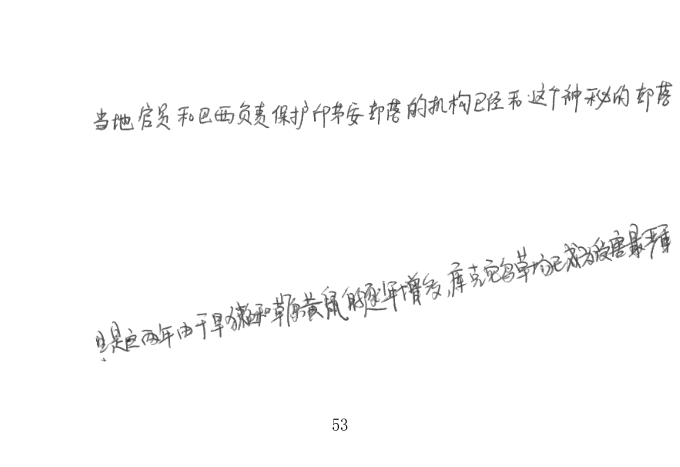 当地官员和巴西负责保护印第安部落的机构已经和这个神秘的部落
但是近两年由于旱獭和草原黄鼠的逐年增多,库克乌苏草场已成为受害最严重
53